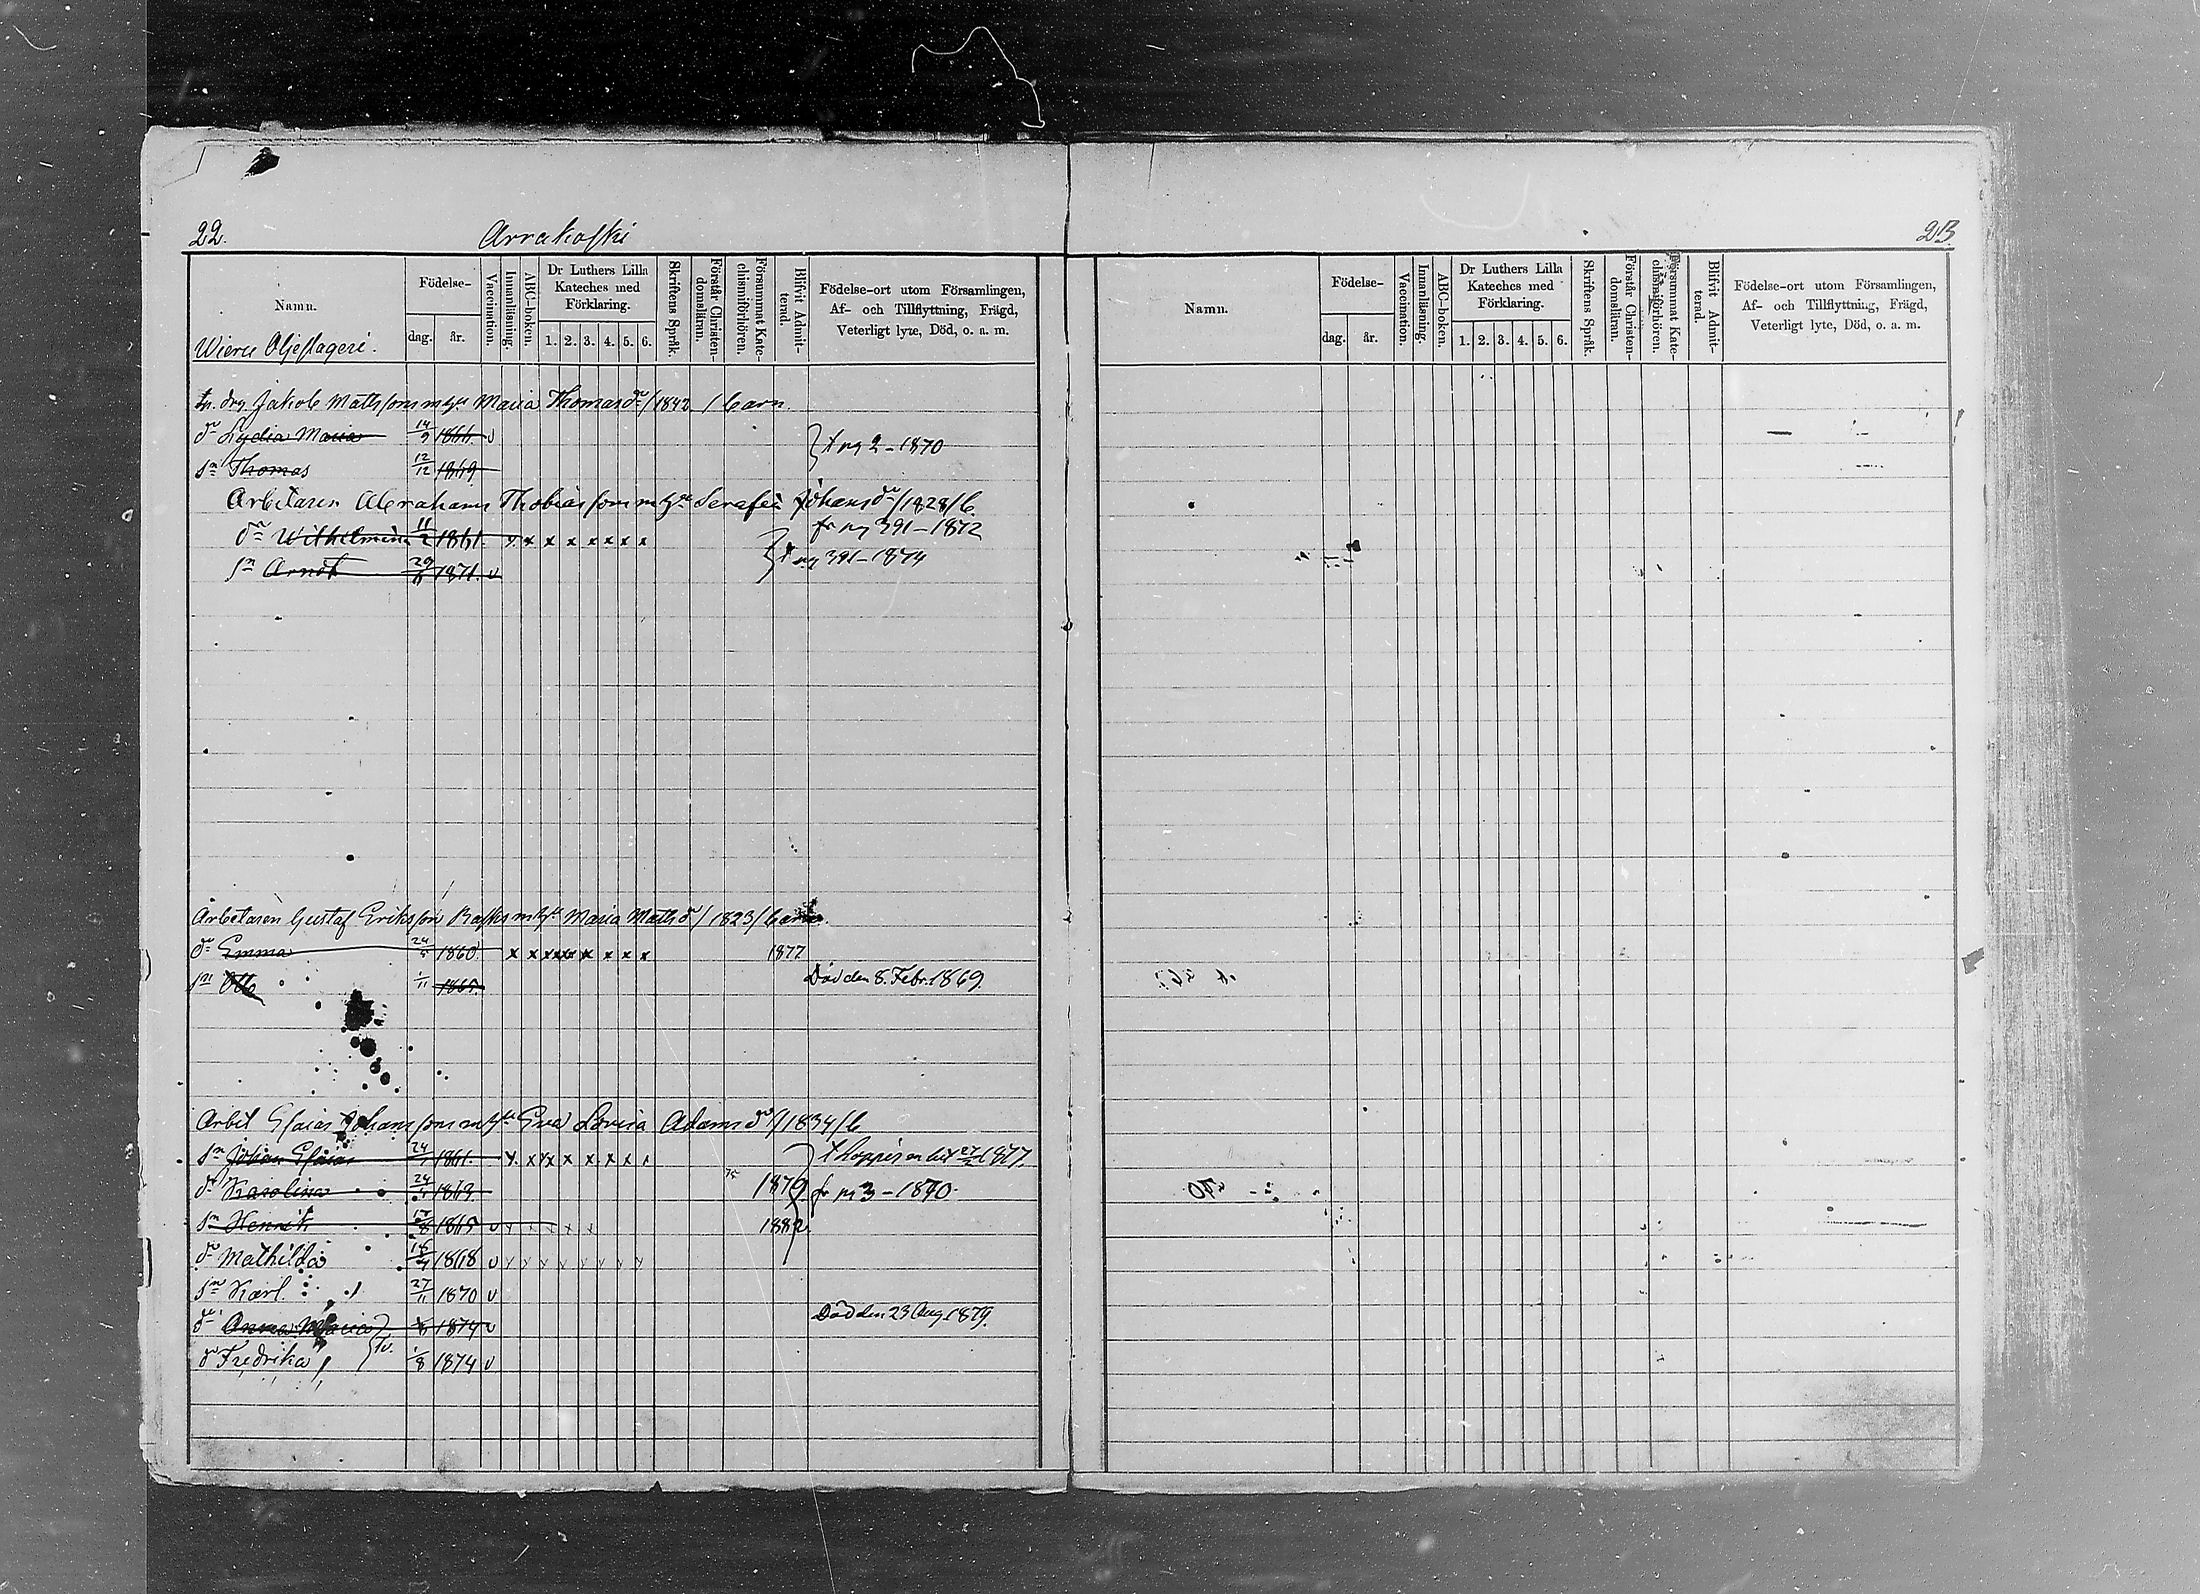 22.
Arrakoski
23
Namn.
Födelse-
dag.
år.
Vaccination.
Innanläsning.
ABC-boken.
Dr Luthers Lilla
Kateches med
Förklaring.
1. 2. 3. 4. 5. 6.
Skriftens Språk.
Förstår Christen-
domsläran.
Försummat Kate-
chismiförhören.
Blifvit Admit-
terad.
Födelse-ort utom Församlingen,
Af- och Tillflyttning, Frägd,
Veterligt lyte, Död, o. a. m.
Wieru Oljeslageri.
Jakob Mathsson m h Maria Thomas dr /1842 / barn
dr Lydia Maria 14/9 1866 v
} t pg 2 - 1870
sn Thomas 12/12 1869
Arbetaren Abraham Thobiasson m h Serafia Johans dr /1828/ b.
fr pg 391 - 1872
dr Wilhelmina 11/2 1861. x x x x x x x x
} t pg 391 - 1874
sn 29 1871. v
Arbetaren Gustaf Eriksson m h Maria Maths dr / 1823 / barn.
dr Emma 24 1860 x x x x x x x x 1877
sn Otto 1/11 1865. Död den 8. Febr. 1869.
Arbet Esaias Johansson m h Eva Lovisa Adams dr /1834/ b
sn Johan Esaias 24 1861. x x x x x x x 1877.
dr Karolina 24 1863 1879 fr pg 3 - 1870.
sn Henrik 17/8 1865 v x x x x x 1882
dr Mathilda 18/4 1868 v x x x x x x x x
sn Karl. 27/11 1870 v
dr Anna Maria } 1/8 1874 v Död den 23 Aug 1879.
dr Fredrika } tv. 1/8 1874 v
Namn.
Födelse-
dag.
år.
Vaccination.
Innanläsning.
ABC-boken.
Dr Luthers Lilla
Kateches med
Förklaring.
1. 2. 3. 4. 5. 6.
Skriftens Språk.
Förstår Christen-
domsläran.
Försummat Kate-
chismiförhören.
Blifvit Admit-
terad.
Födelse-ort utom Församlingen,
Af- och Tillflyttning, Frägd,
Veterligt lyte, Död, o. a. m.